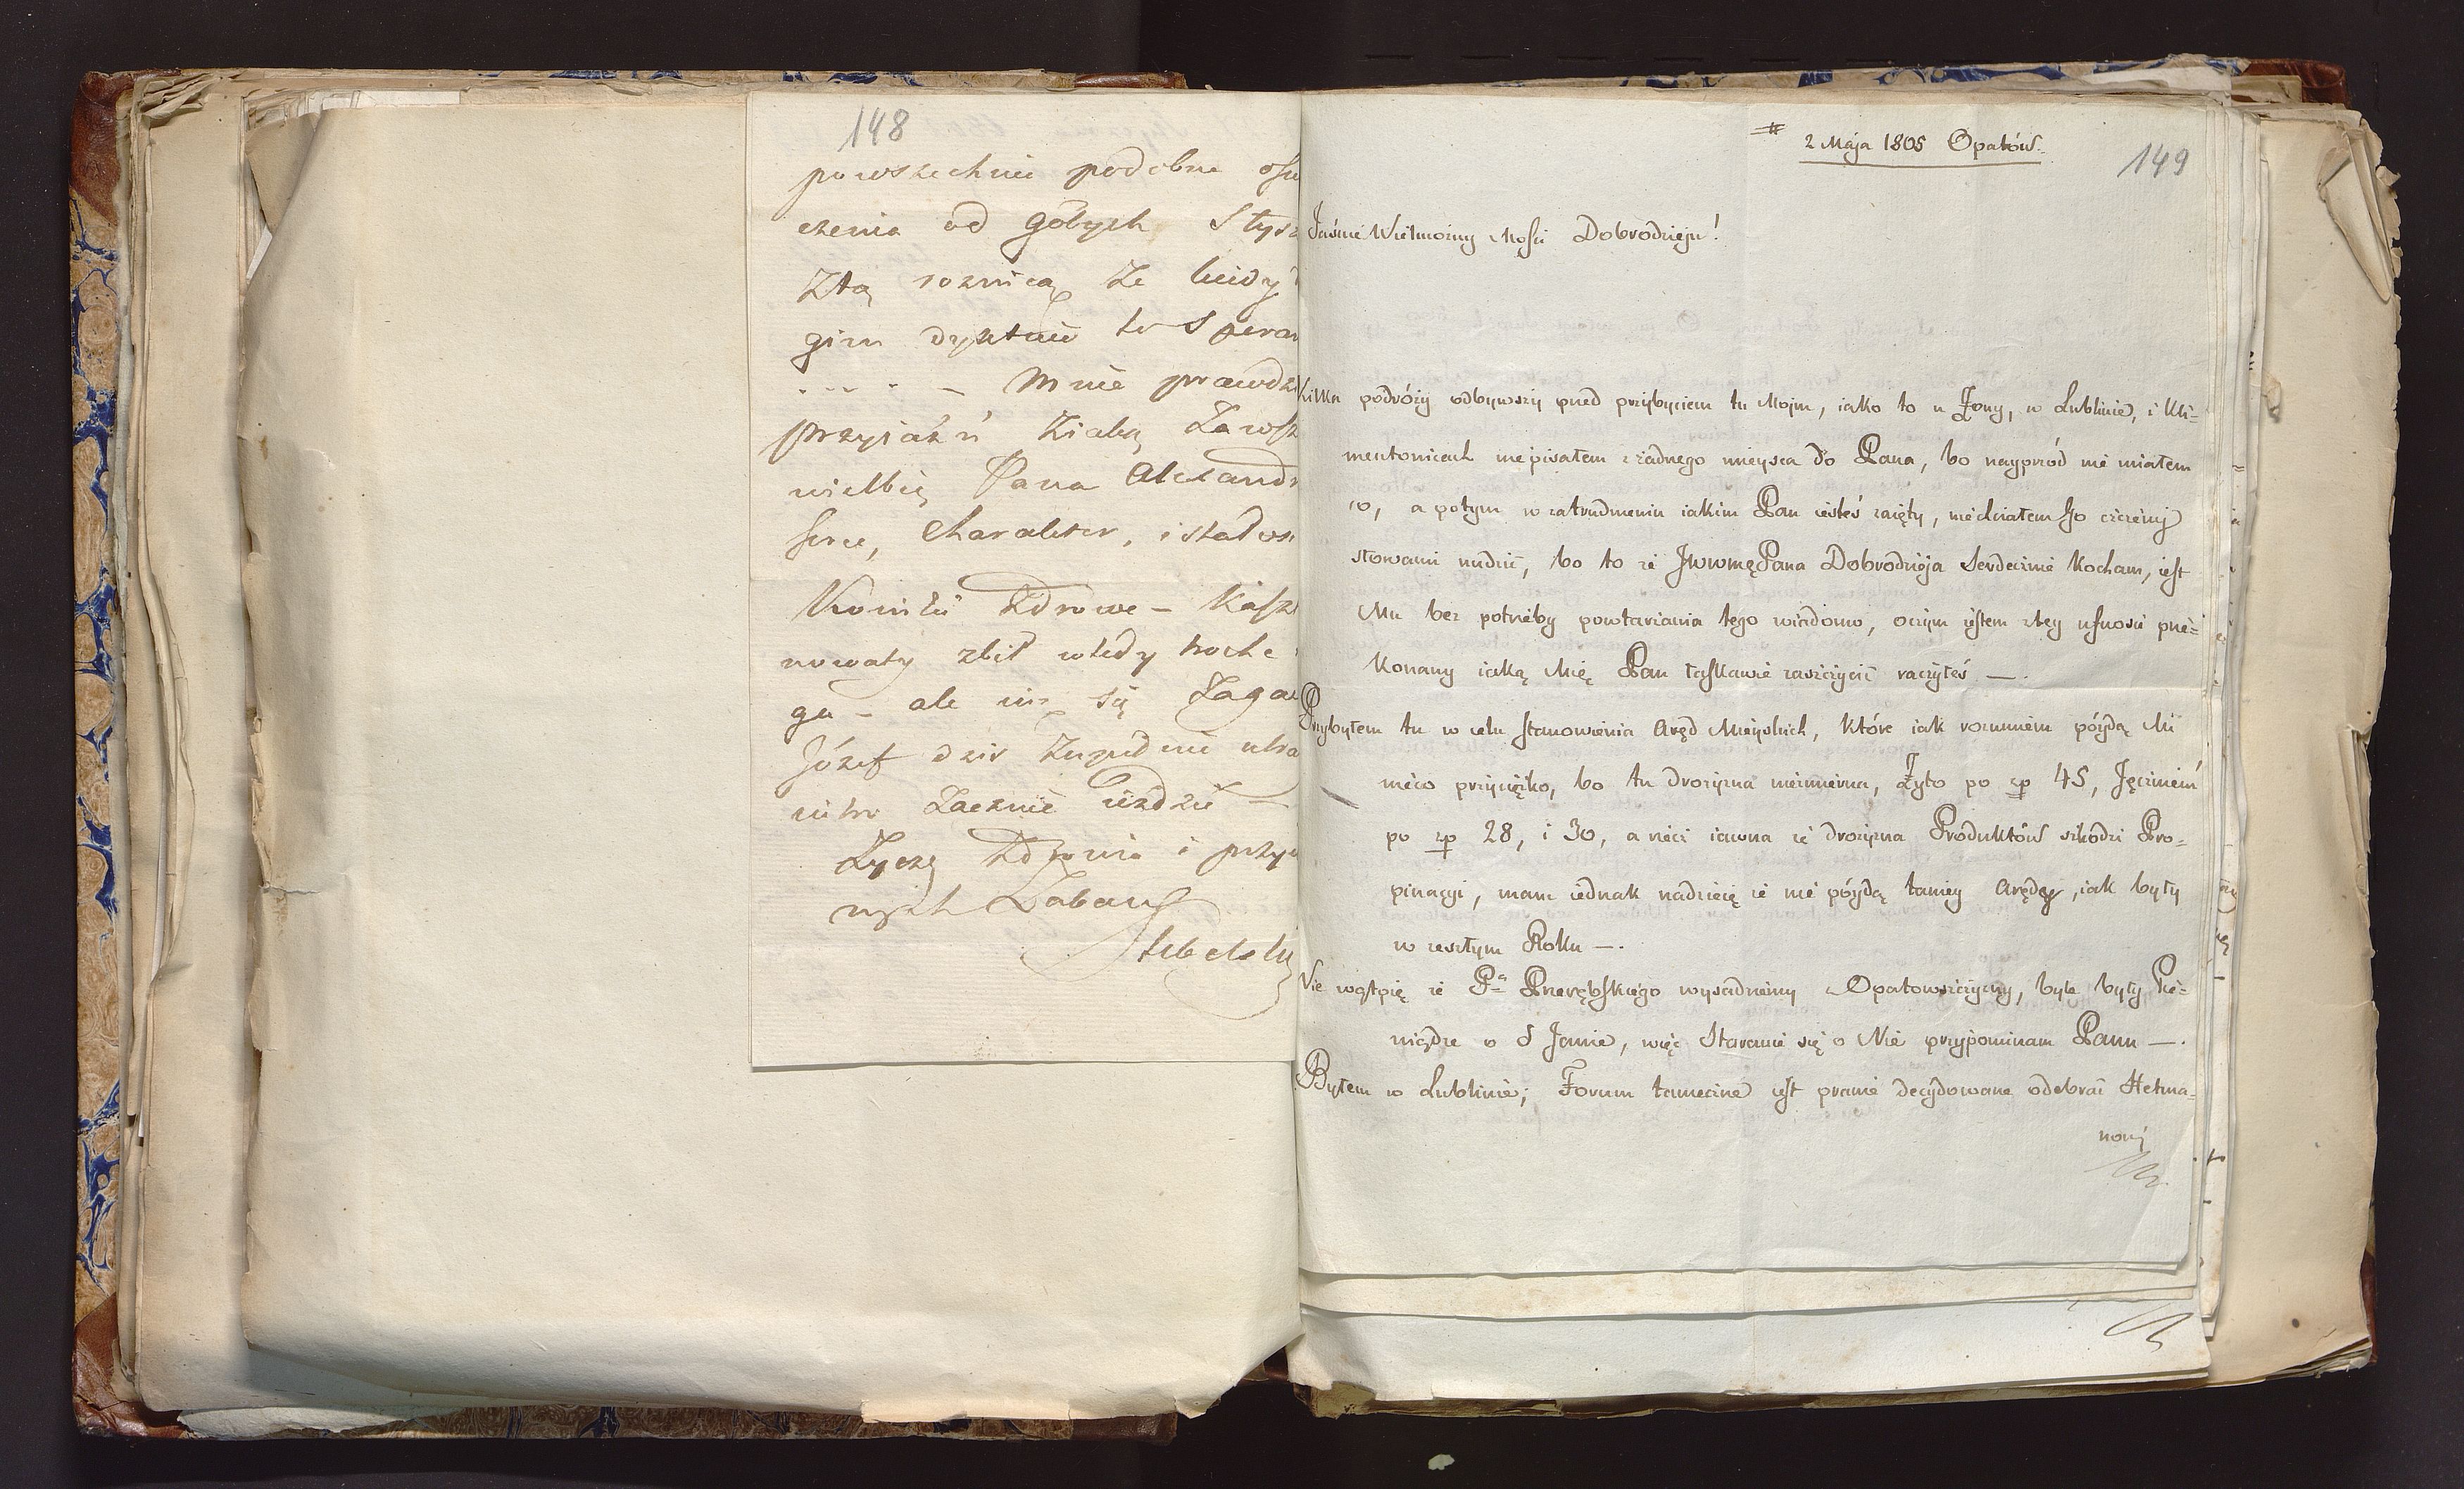 148
powszechnie podobne osu
czenia od Gołych Słysz
Ztą roznicą że kiedy
gim dyktuie to Speran
. . . . – Mnie prawdzi
przyiaźń Ziałą Zawsz
wielbię Pana Alexandr
serce, Charakter, i stałoś
Koniki Zdrowe – Kasz
nowaty zbił wtedy troche
ga – ale im się Zagai
Józef dziś Zupełnie utra
iutro Zacznie ieździć –
Życzę Zdrowia i przyi
nych Zabaw
2 Maja 1805 Opatów.
149
Jaśnie Wielmożny Mości Dobrodzieju!
Kilka podróży odbywszy przed przybyciem tu Mojm, iako to u Żony, w Lublinie, i Kli=
mentowicach nie pisałem z żadnego mieysca do Pana, bo nayprzód nie miałem
co, a potym w zatrudnieniu iakim Pan iesteś zaięty, nie chciałem Go czczemi
słowami nudzić, bo to że JWWMęPana Dobrodzieja Serdecznie Kocham, iest
Mu bez potrzeby powtarzania tego wiadomo, oczym iestem z tey ufności prze=
konany iaką Mię Pan łaskawie zaszczycić raczyłeś —.
Przybyłem tu w celu stanowienia Aręd Mieyskich, które iak rozumiem póydą Mi
nieco przyciężko, bo tu drożyzna niezmierna, Żyto po zp 45, Jęczmień
po zp 28, i 30, a rzecz iawna że drożyzna Produktów szkodzi Pro=
pinacyi, mam iednak nadzieię że nie póydą taniey Arędy, iak były
w zeszłym Roku —.
Nie wątpię że Pa Przerębskiego wysadziemy z Opatowszczyzny, byle były Pie=
niądze o S Janie, więc Staranie się o Nie przypominam Panu —.
Byłem w Lublinie; Forum tameczne iest prawie decydowane odebrać Hetma=
nowi